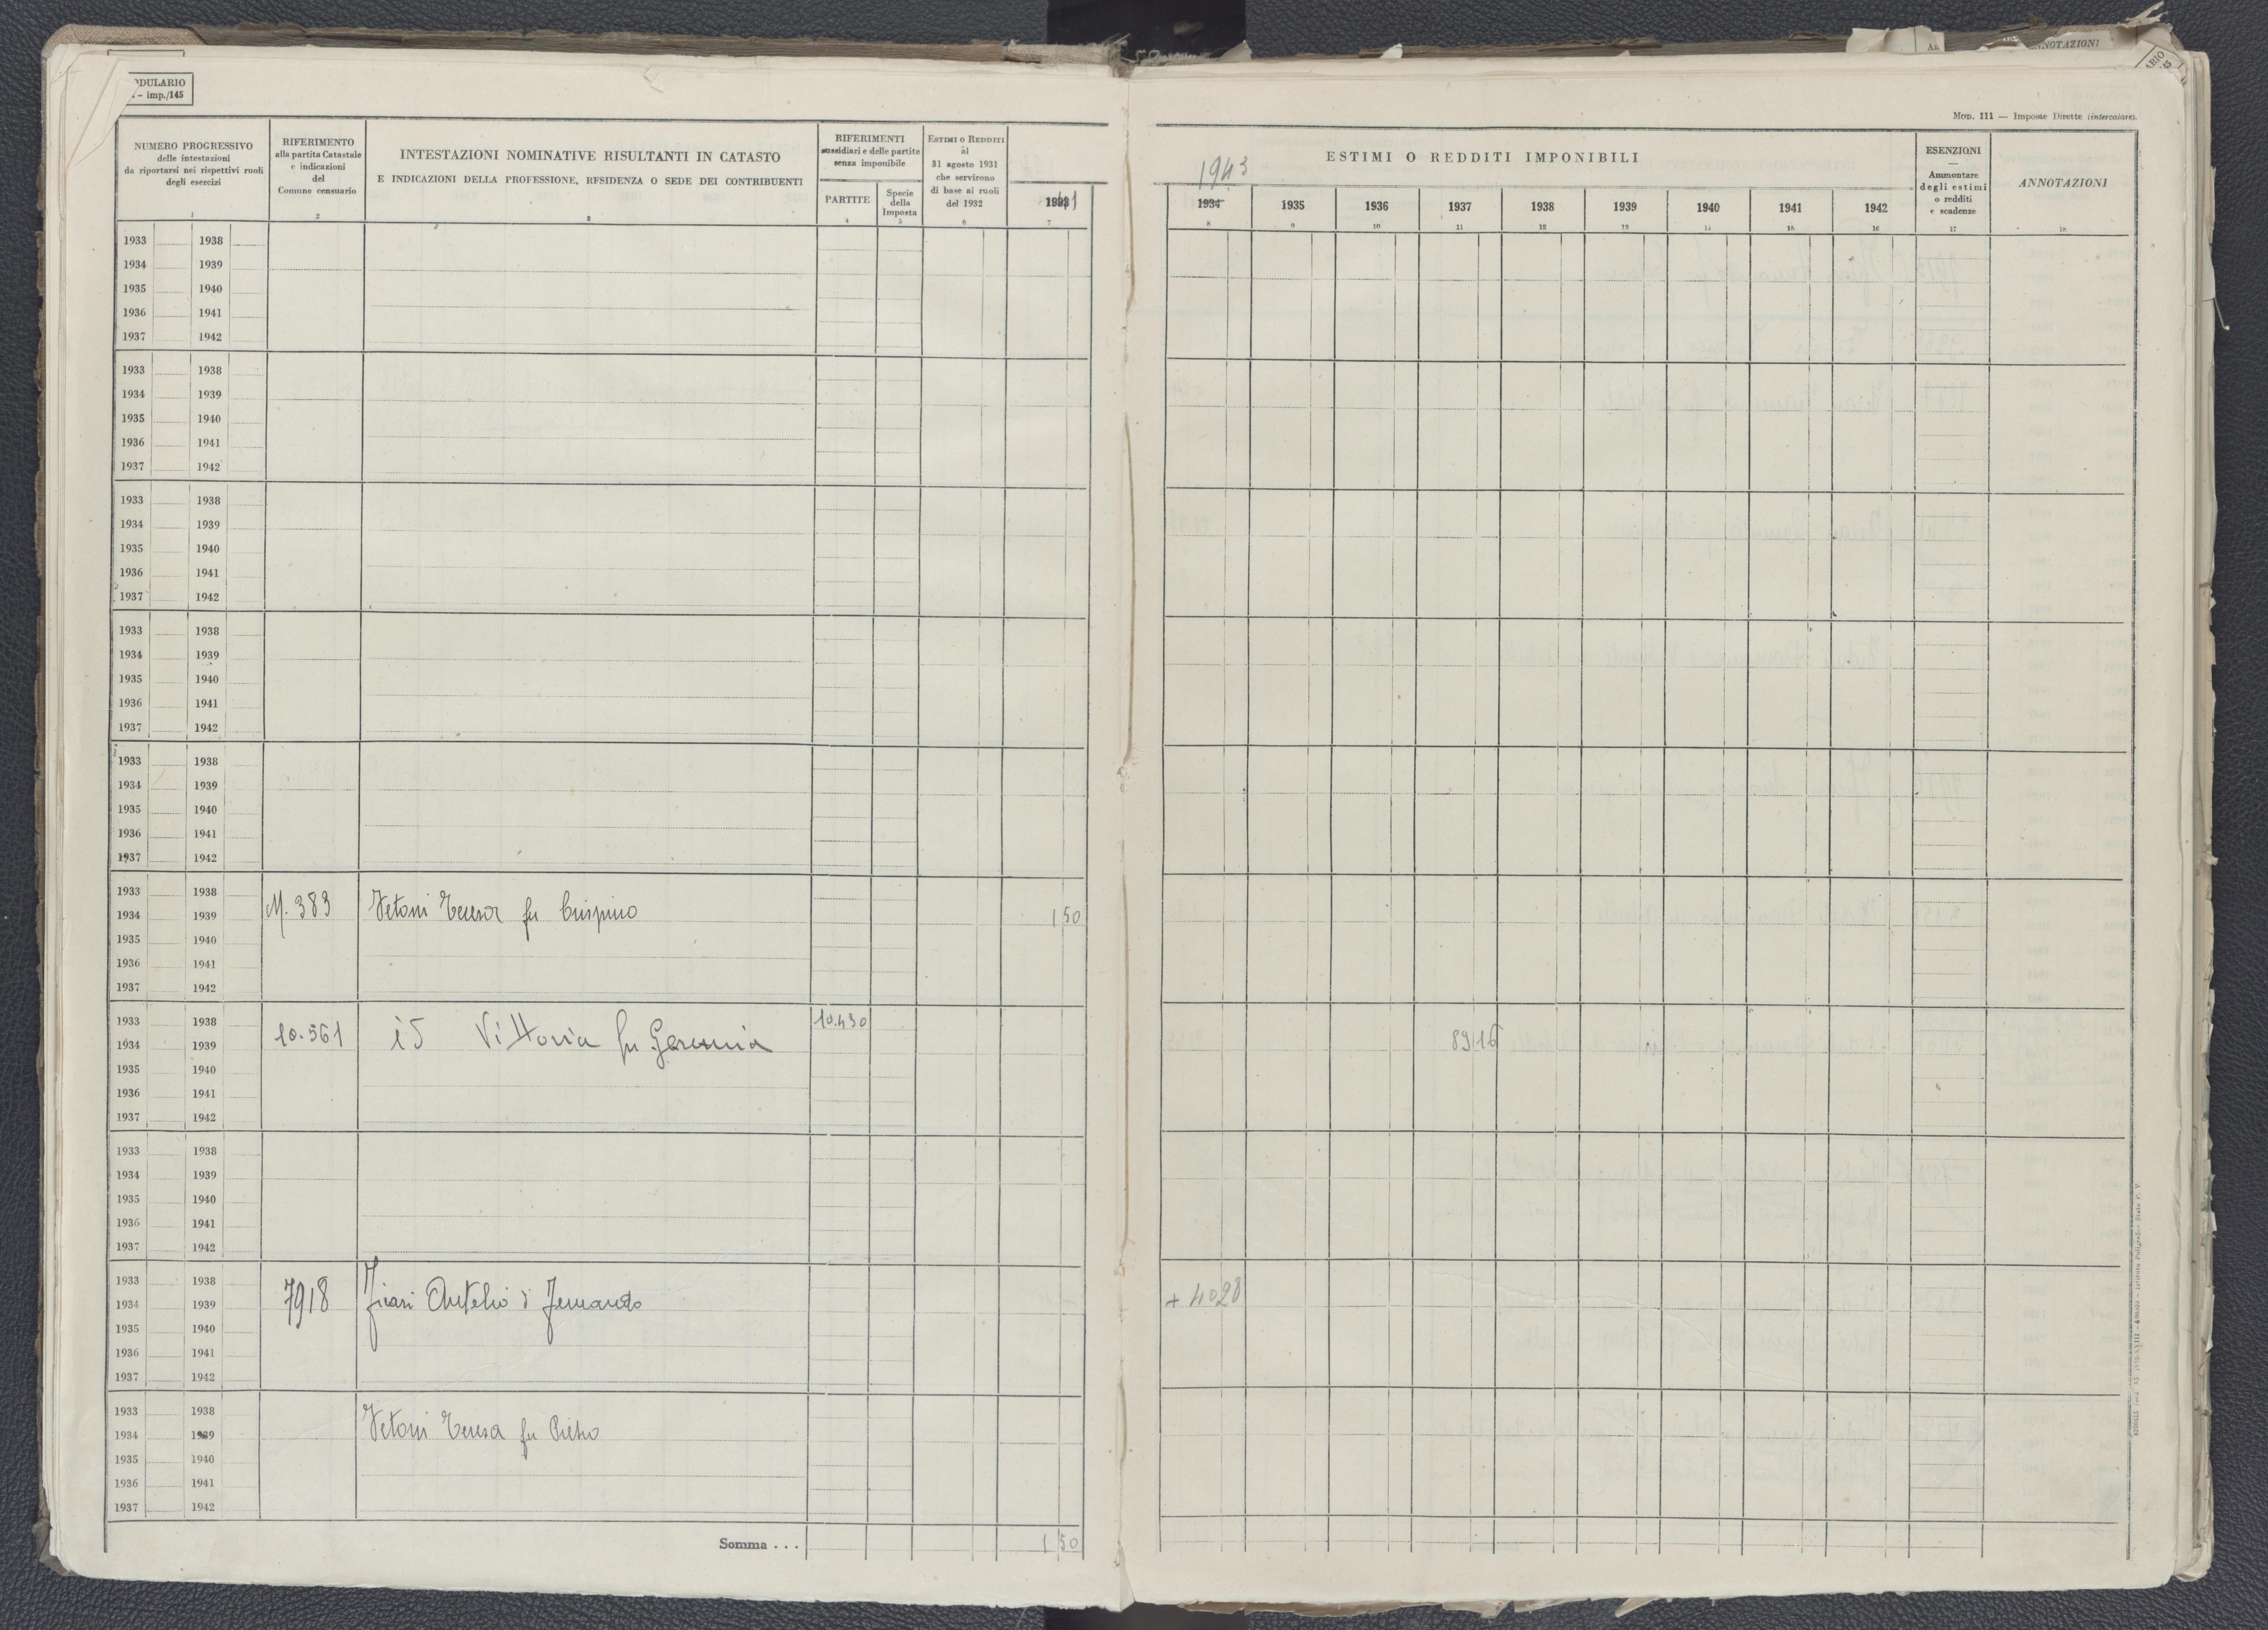 MODULARIO
- imp./145
NUMERO PROGRESSIVO
delle intestazioni
da riportarsi nei rispettivi ruoli
degli esercizi
1
RIFERIMENTO
alla partita Catastale
e indicazioni
del
Comune censuario
2
INTESTAZIONI NOMINATIVE RISULTANTI IN CATASTO
E INDICAZIONI DELLA PROFESSIONE, RESIDENZA O SEDE DEI CONTRIBUENTI
3
RIFERIMENTI
sussidiari e delle partite
senza imponibile
PARTITE
4
Specie
della
Imposta
5
ESTIMI O REDDITI
al
31 agosto 1931
che servirono
di base ai ruoli
del 1932
6
7
Mod. 111 — Imposte Dirette (intercalare).
ESTIMI O REDDITI IMPONIBILI
1943
1934 1935 1936 1937 1938 1939 1940 1941 1942
8 9 10 11 12 13 14 15 16
ESENZIONI
—
Ammontare
degli estimi
o redditi
e scadenze
17
ANNOTAZIONI
18
1933 1938
1934 1939
1935 1940
1936 1941
1937 1942
1933 1938
1934 1939
1935 1940
1936 1941
1937 1942
1933 1938
1934 1939
1935 1940
1936 1941
1937 1942
1933 1938
1934 1939
1935 1940
1936 1941
1937 1942
1933 1938
1934 1939
1935 1940
1936 1941
1937 1942
1933 1938
1934 1939
1935 1940
1936 1941
1937 1942
M. 383 Vetoni Teresa fu Crispino 1 50
1933 1938
1934 1939
1935 1940
1936 1941
1937 1942
10.561 Vittoria fu Geremia 10.430 89 16
1933 1938
1934 1939
1935 1940
1936 1941
1937 1942
1933 1938
1934 1939
1935 1940
1936 1941
1937 1942
7918 Fernando + 40 28
1933 1938
1934 1939
1935 1940
1936 1941
1937 1942
Vetoni Teresa fu Pietro
Somma . . . 1 50